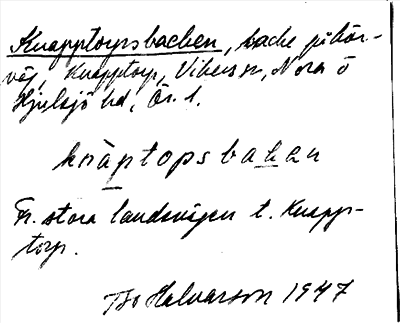 Knapptorpsbacken, backe på kör-
väg, Knapptorp, Vikers sn, Nora o
Hjulsjö hd, Ör. l.
knäptopsbakan
Fr. stora landsvägen t. Knapp-
torp.
Bo Halvarson 1947